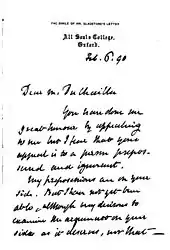 THE SMALLS OF MR. GLADSTONE'S LETTER
All Souls College,
Oxford.
Feb. 6. 90
Dear M. Du Chaillu
You have done me
great honour by appealing
to me but I fear that your
appeal is to a person prepos-
sessed and ignorant.
My prepossessions are on your
side. But I have not yet been
able, although my desire to
examine the argument on your
side as it deserves, not that